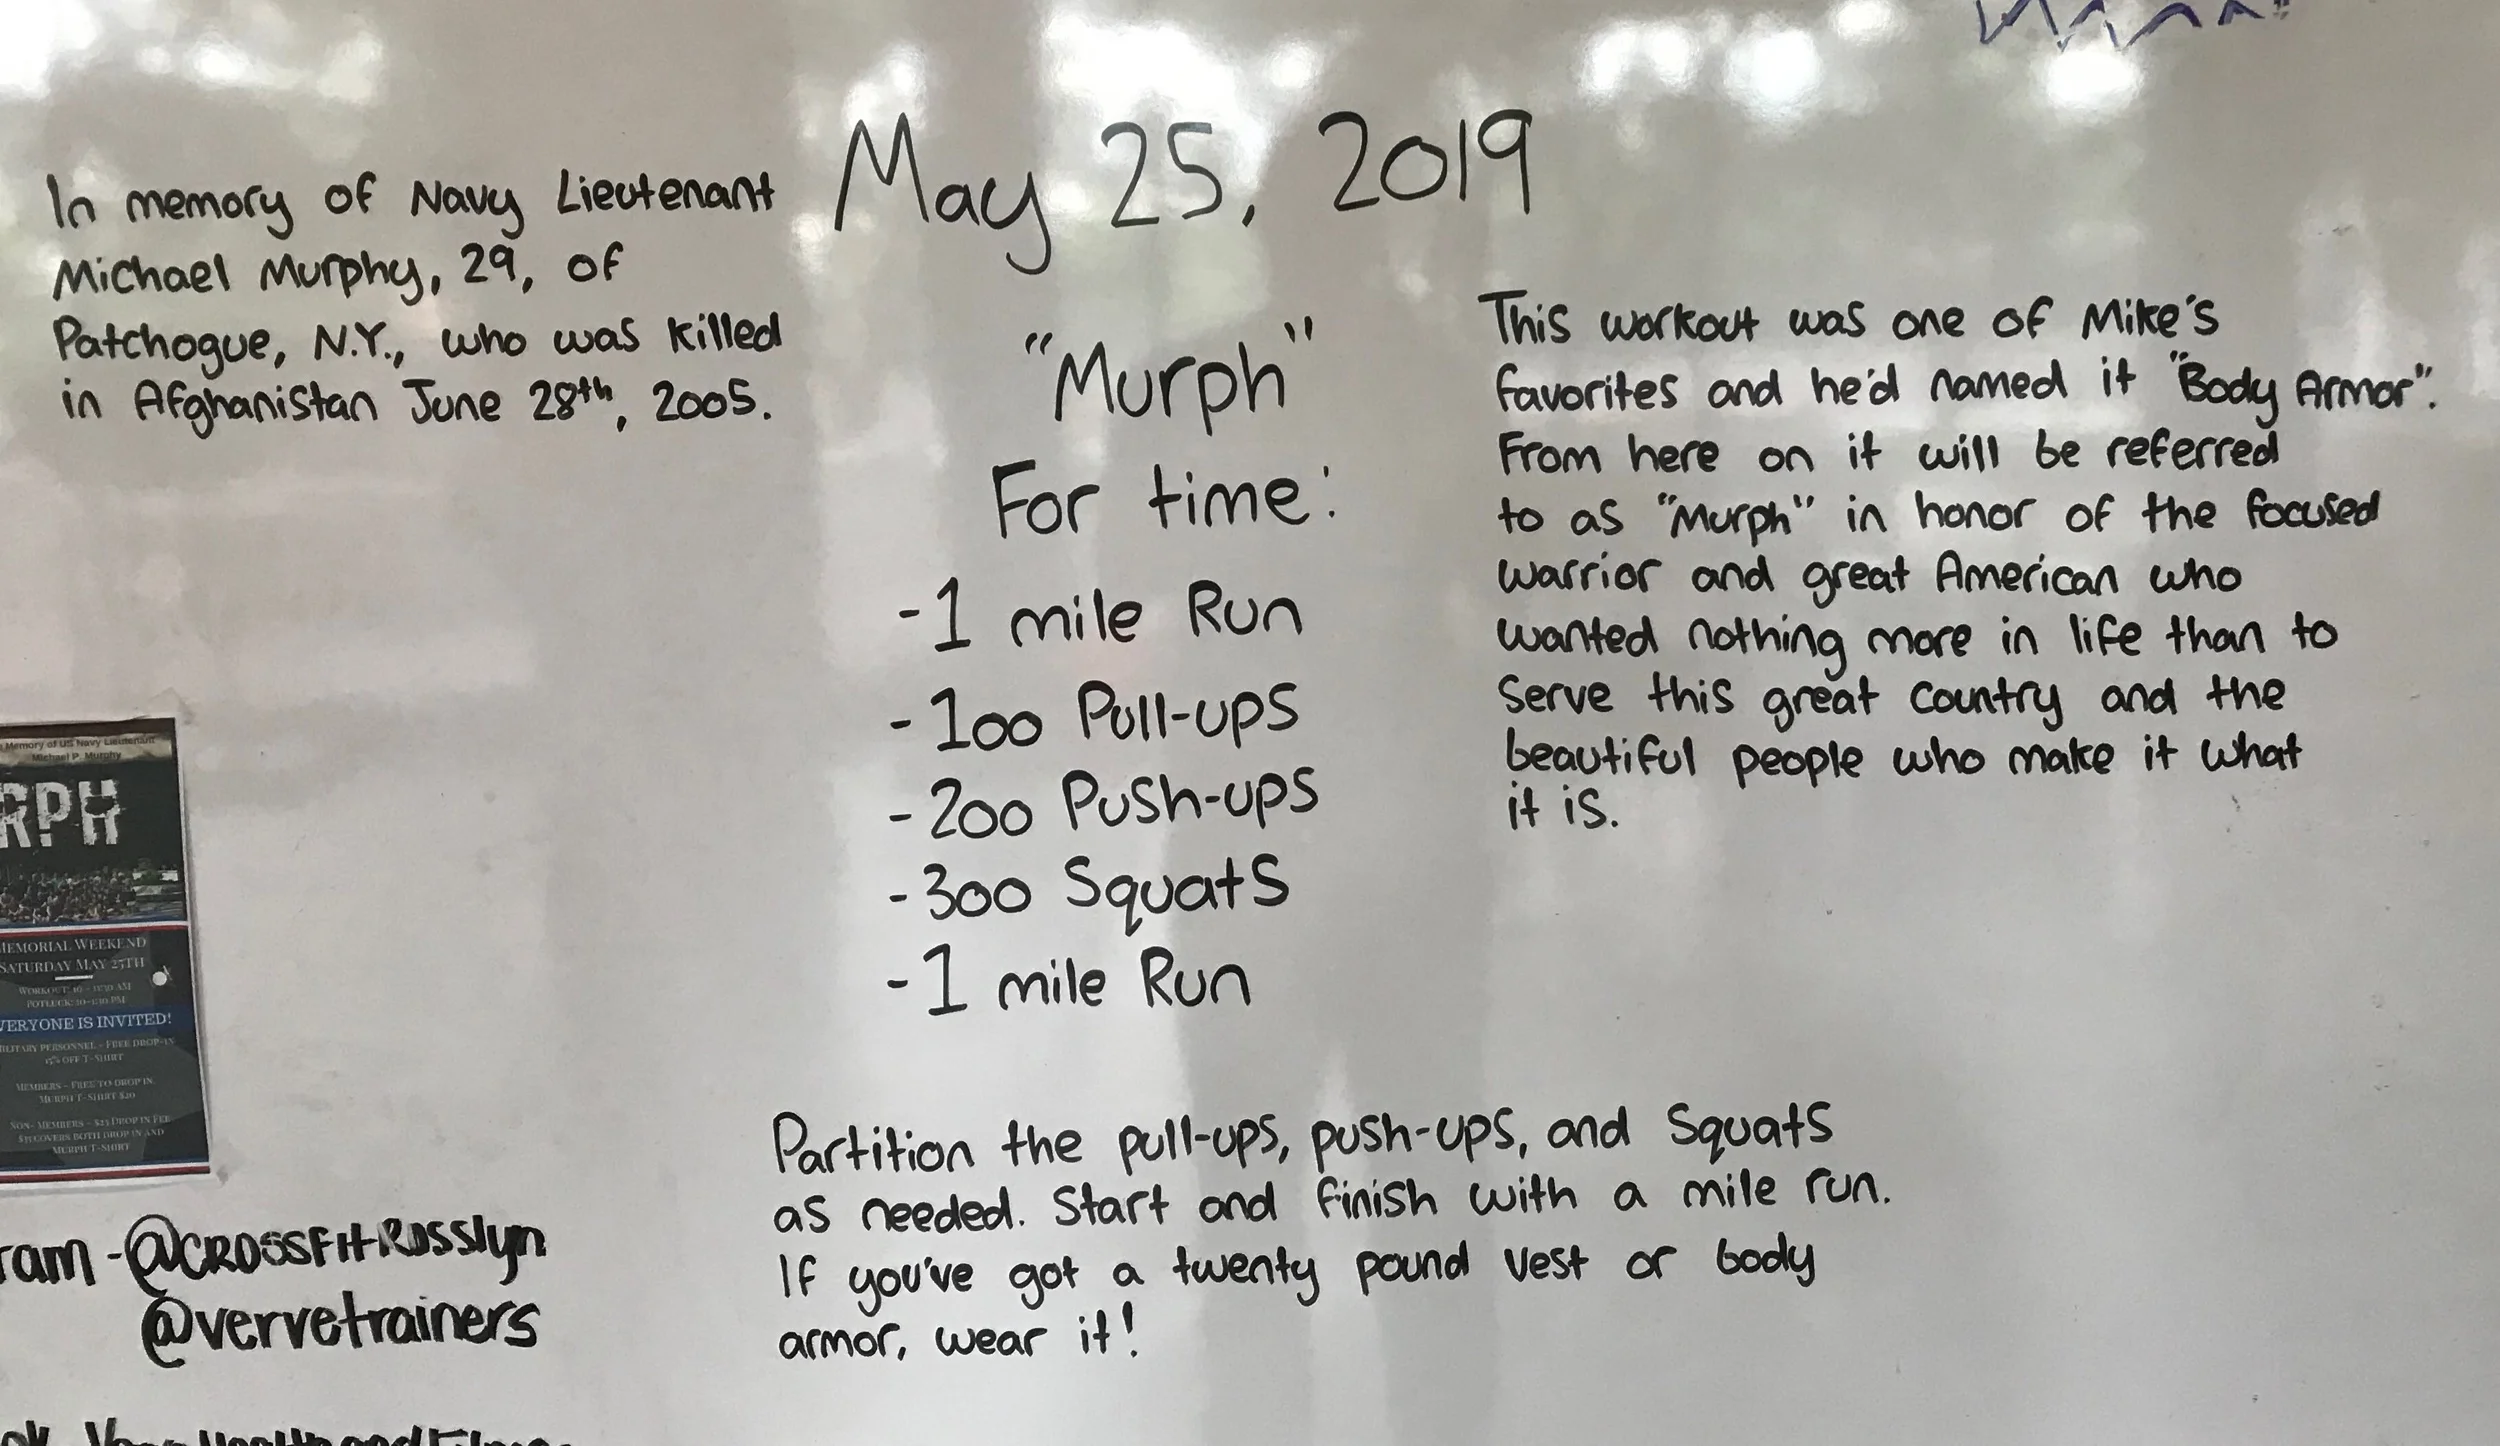 May 25, 2019
In memory of Navy Lieutenant
Michael Murphy, 29, of
Patchogue, N.Y., who was killed
in Afghanistan June 28th, 2005.
"Murph"
For time:
-1 mile Run
-100 Pull-ups
-200 Push-ups
-300 Squats
-1 mile Run
This workout was one of Mike's
favorites and he'd named it "Body Armor".
From here on it will be referred
to as "Murph" in honor of the focused
warrior and great American who
wanted nothing more in life than to
serve this great country and the
beautiful people who make it what
it is.
Partition the pull-ups, push-ups, and Squats
as needed. Start and finish with a mile run.
If you've got a twenty pound vest or body
armor, wear it!
Memory of US Navy Lieutenant
Michael P. Murphy
RPH
MEMORIAL WEEKEND
SATURDAY MAY 25TH
WORKOUT: 10 - 11:30 AM
VERYONE IS INVITED!
PERSONNEL - FREE DROP-IN
15% OFF T-SHIRT
MEMBERS - FREE TO DROP IN
MURPH T-SHIRT $20
NON-MEMBERS - $25 DROP IN FEE
COVERS BOTH DROP IN AND
MURPH T-SHIRT
ram -@CROSSFitROsslyn
@vervetrainers